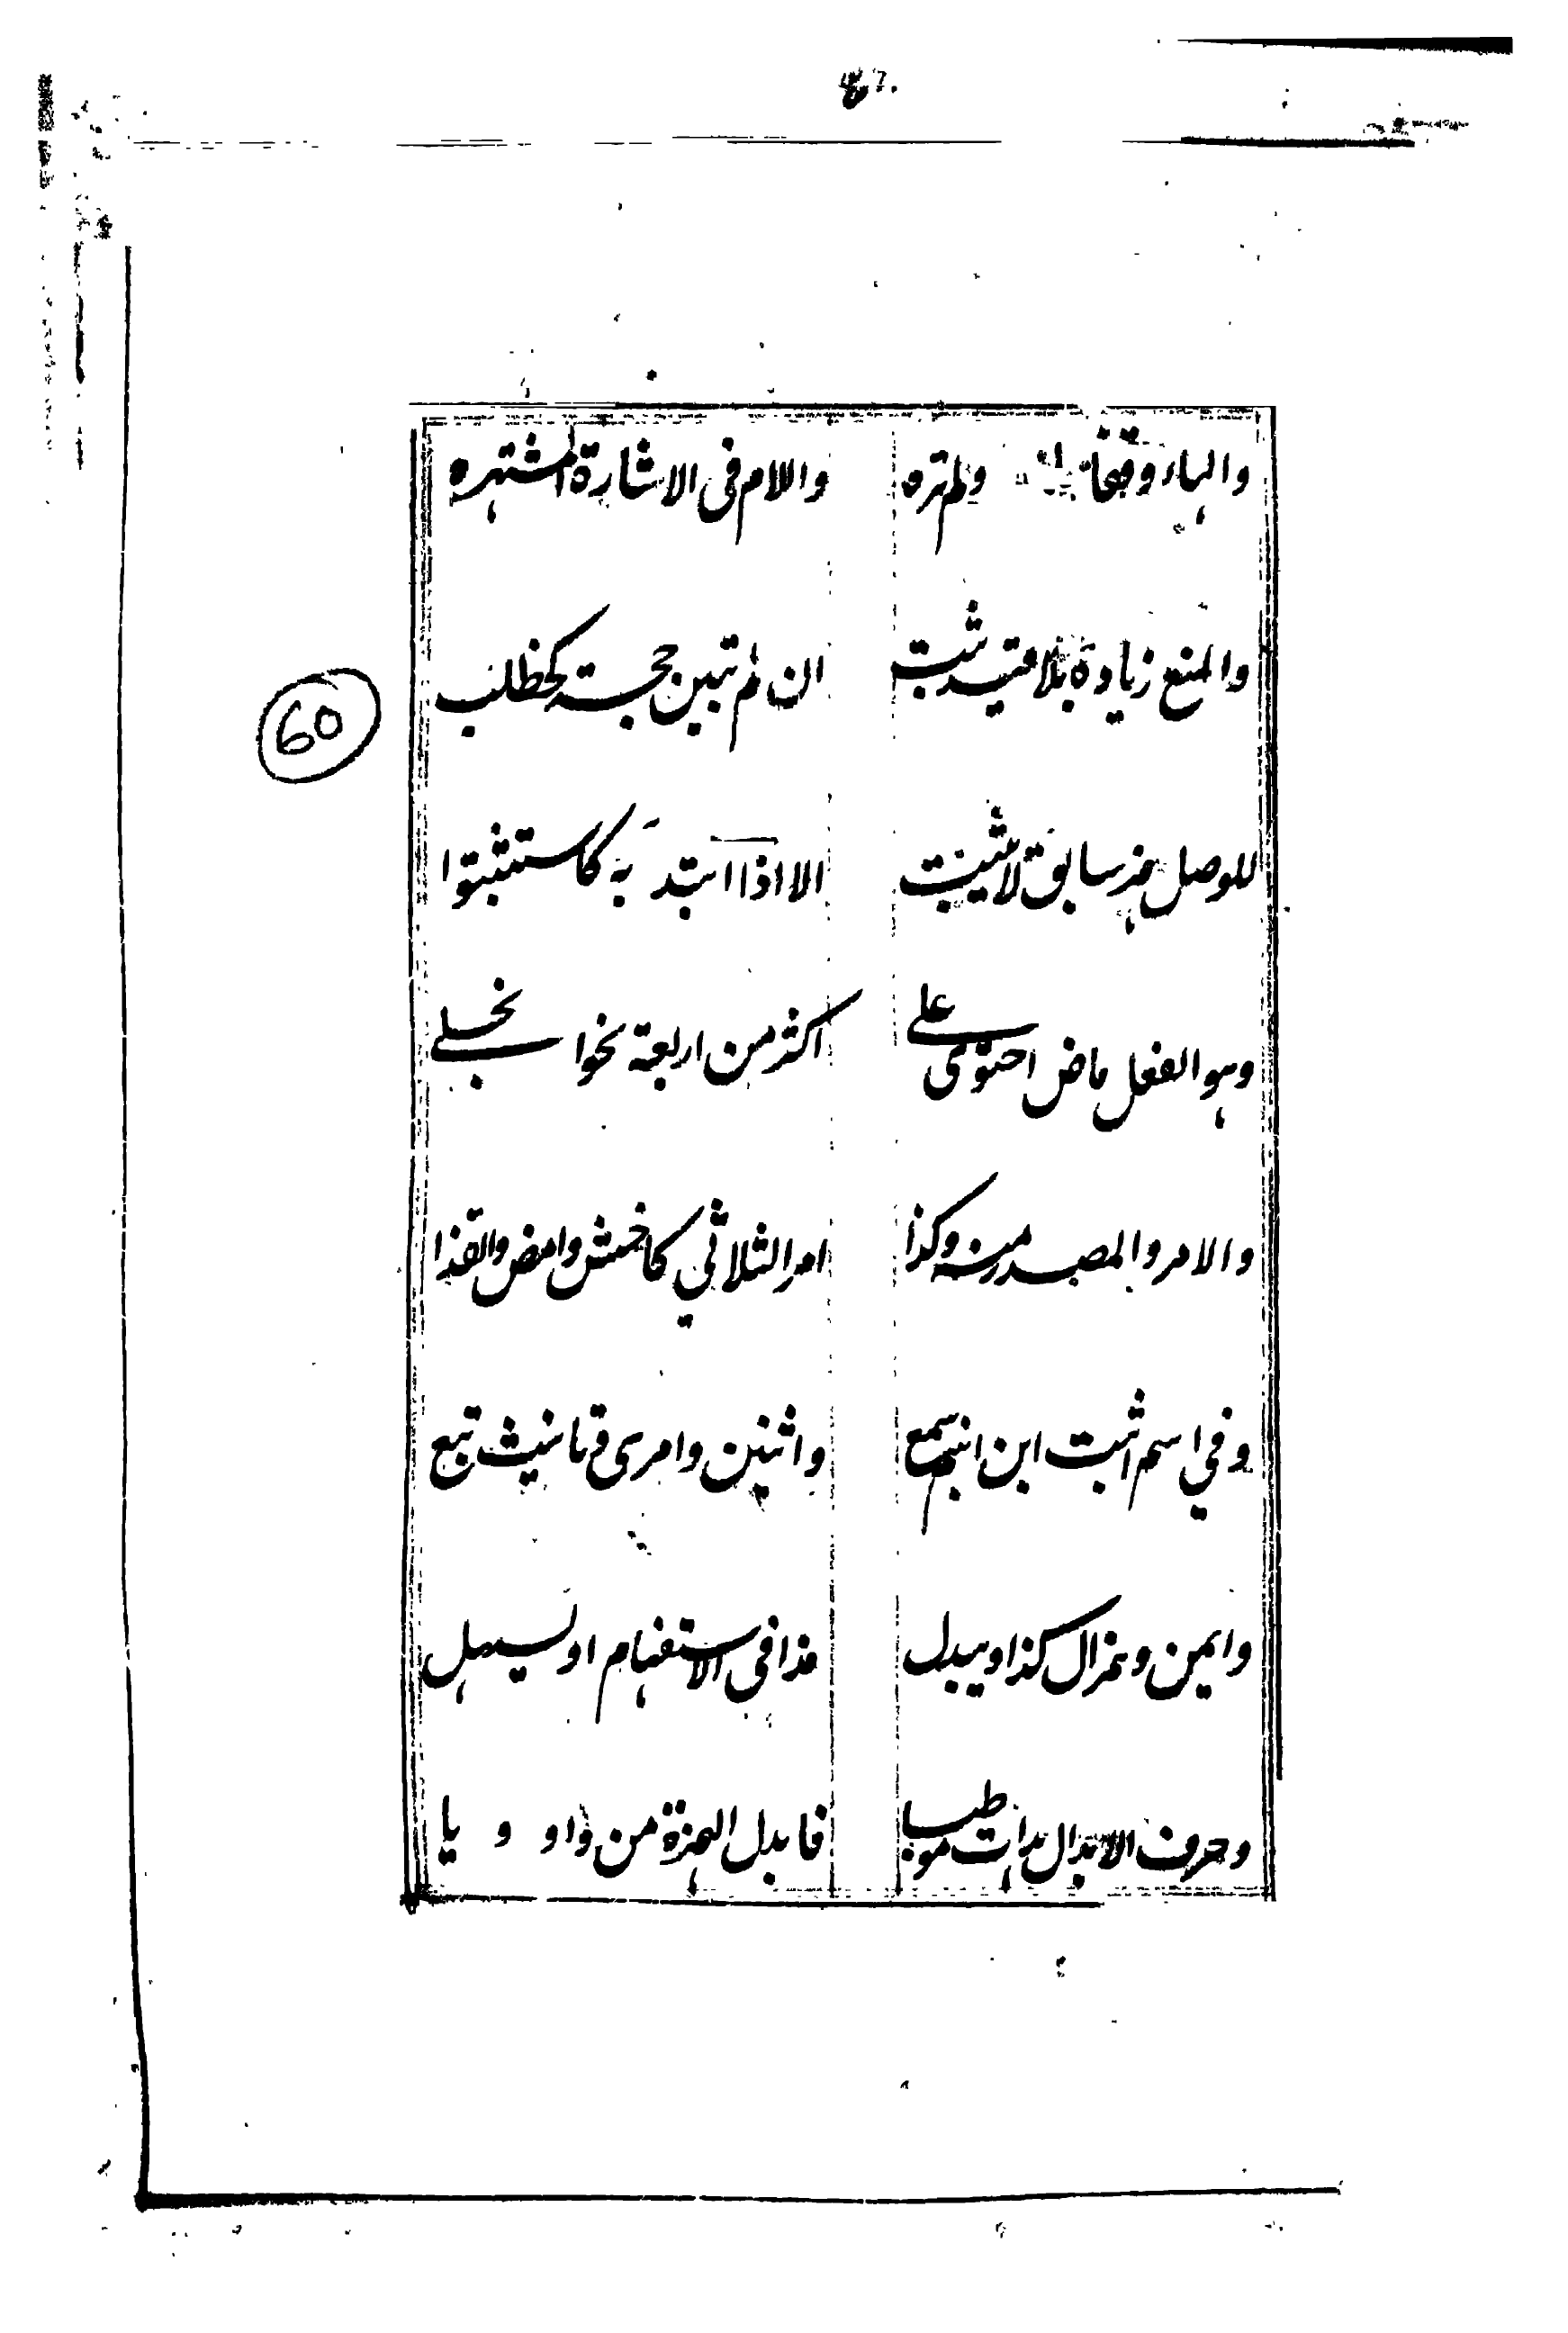 والهاء وقفا ولم تره واللام فى الاشارة المشتهره
وامنع زيادة بلا قيد ثبت ان لم تبين حجة كحظلت
60
للوصل همز سابق لا يثبت الا اذا ابتدى به كاستثبتوا
وهو الفعل ماض احتوى على اكثر من اربعة نحوا نجلى
والامر والمصدر منه وكذا امر الثلاثي كاخش وامض وانفذا
وفي اسم است ابن ابنم سمع واثنين وامرى وتانيث تبع
وايمن وهمزال كذا ويبدل مدا فى الاستفهام او يسهل
وحرف الابدال هدات موطيا فابدل الهمزة من واو و يا